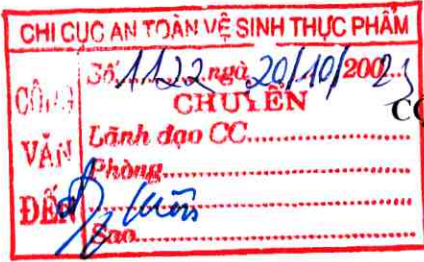 CHI CỤC AN TOÀN VỆ SINH THỰC PHẨM
CÔNG VĂN ĐẾN
Số 1122 ngà 20/10/2002
CHUYỂN
Lãnh đạo CC
Phòng
Sao
CỘ